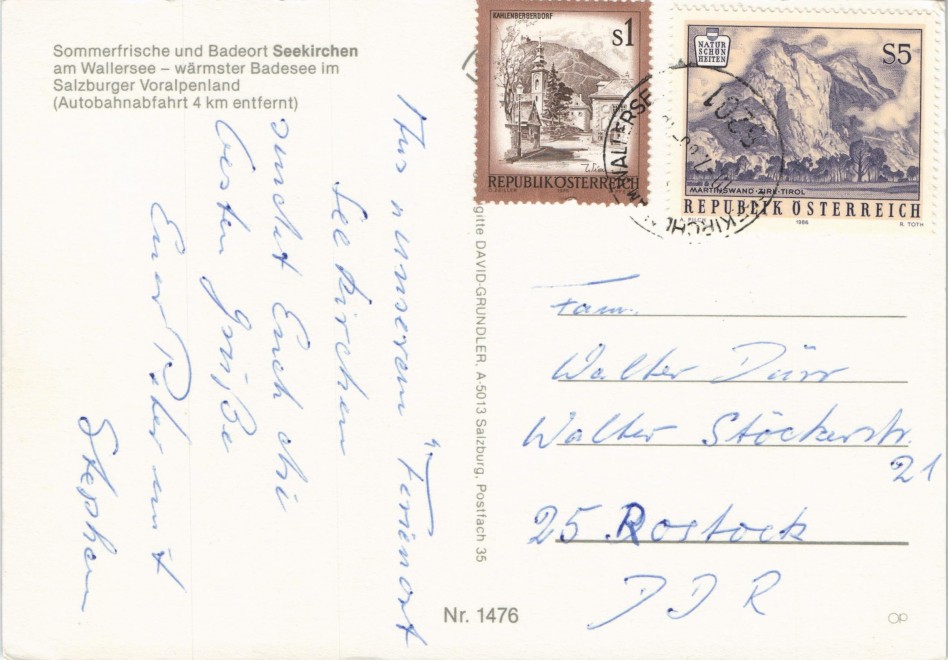 Sommerfrische und Badeort Seekirchen
am Wallersee – wärmster Badesee im
Salzburger Voralpenland
(Autobahnabfahrt 4 km entfernt)
KAHLENBERGERDORF
S1
REPUBLIK ÖSTERREICH
NATUR
SCHÖN
HEITEN
S5
MARTINSWAND-ZIRL-TIROL
REPUBLIK ÖSTERREICH
1986
R. TOTH
5201
Aus unserem "Ferienort
Seekirchen
sendet Euch die
besten Grüße
Euer Peter mit
Stephan
gitte DAVID-GRUNDLER, A-5013 Salzburg, Postfach 35
Fam.
Walter Dürr
Walter Stöckerstr.
21
25 Rostock
DDR
Nr. 1476